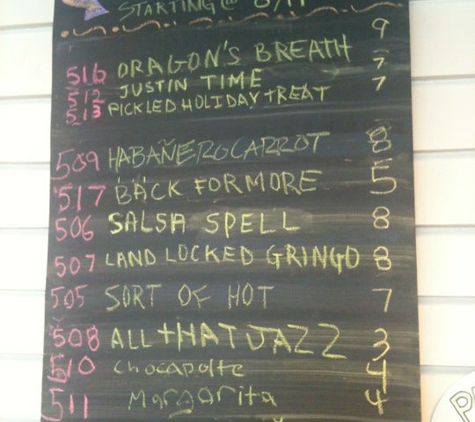 STARTING @ 8/11
9
516 DRAGON'S BREATH 7
512 JUSTIN TIME 7
513 PICKLED HOLIDAY TREAT
509 HABAÑERO CARROT 8
517 BACK FOR MORE 5
506 SALSA SPELL 8
507 LAND LOCKED GRINGO 8
505 SORT OF HOT 7
508 ALL THAT JAZZ 3
510 chocapolte 4
511 Margarita 4